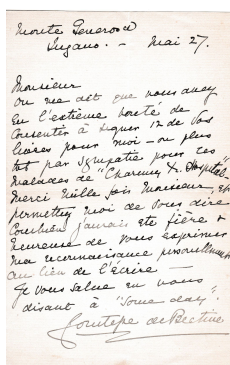 Monte Generoso
Lugano. - Mai 27.
Monsieur
On me dit que vous avez
eu l'extrême bonté de
consentir à signer 12 de vos
livres pour moi - ou plus
tot par sympatie pour les
malades de "Charing X. Hospital"
Merci Mille fois Monsieur, et
permettez moi de vous dire
combien j'aurais été fière &
heureuse de vous exprimer
ma reconnaissance personnellement
au lieu de l'écrire -
Je vous salue en vous
disant à "some day".
Comtesse de